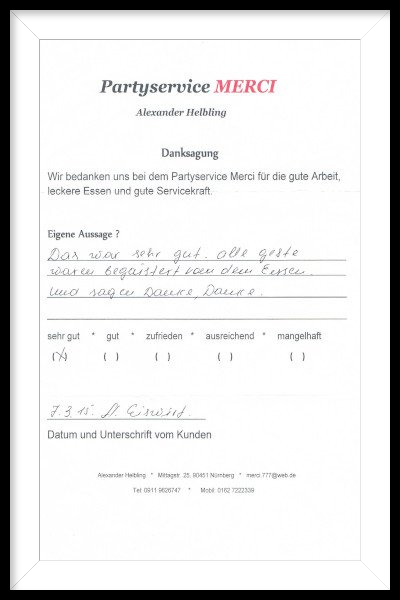 Partyservice MERCI
Alexander Helbling
Danksagung
Wir bedanken uns bei dem Partyservice Merci für die gute Arbeit,
leckere Essen und gute Servicekraft.
Eigene Aussage ?
Das war sehr gut. alle geste
waren begaistert von dem Essen.
Und sagen Danke, Danke.
sehr gut * gut * zufrieden * ausreichend * mangelhaft
(X) ( ) ( ) ( ) ( )
7.3.15.
Datum und Unterschrift vom Kunden
Alexander Helbling * Mittagstr. 25, 90451 Nürnberg * merci.777@web.de
Tel: 0911 9626747 * Mobil: 0162 7222339